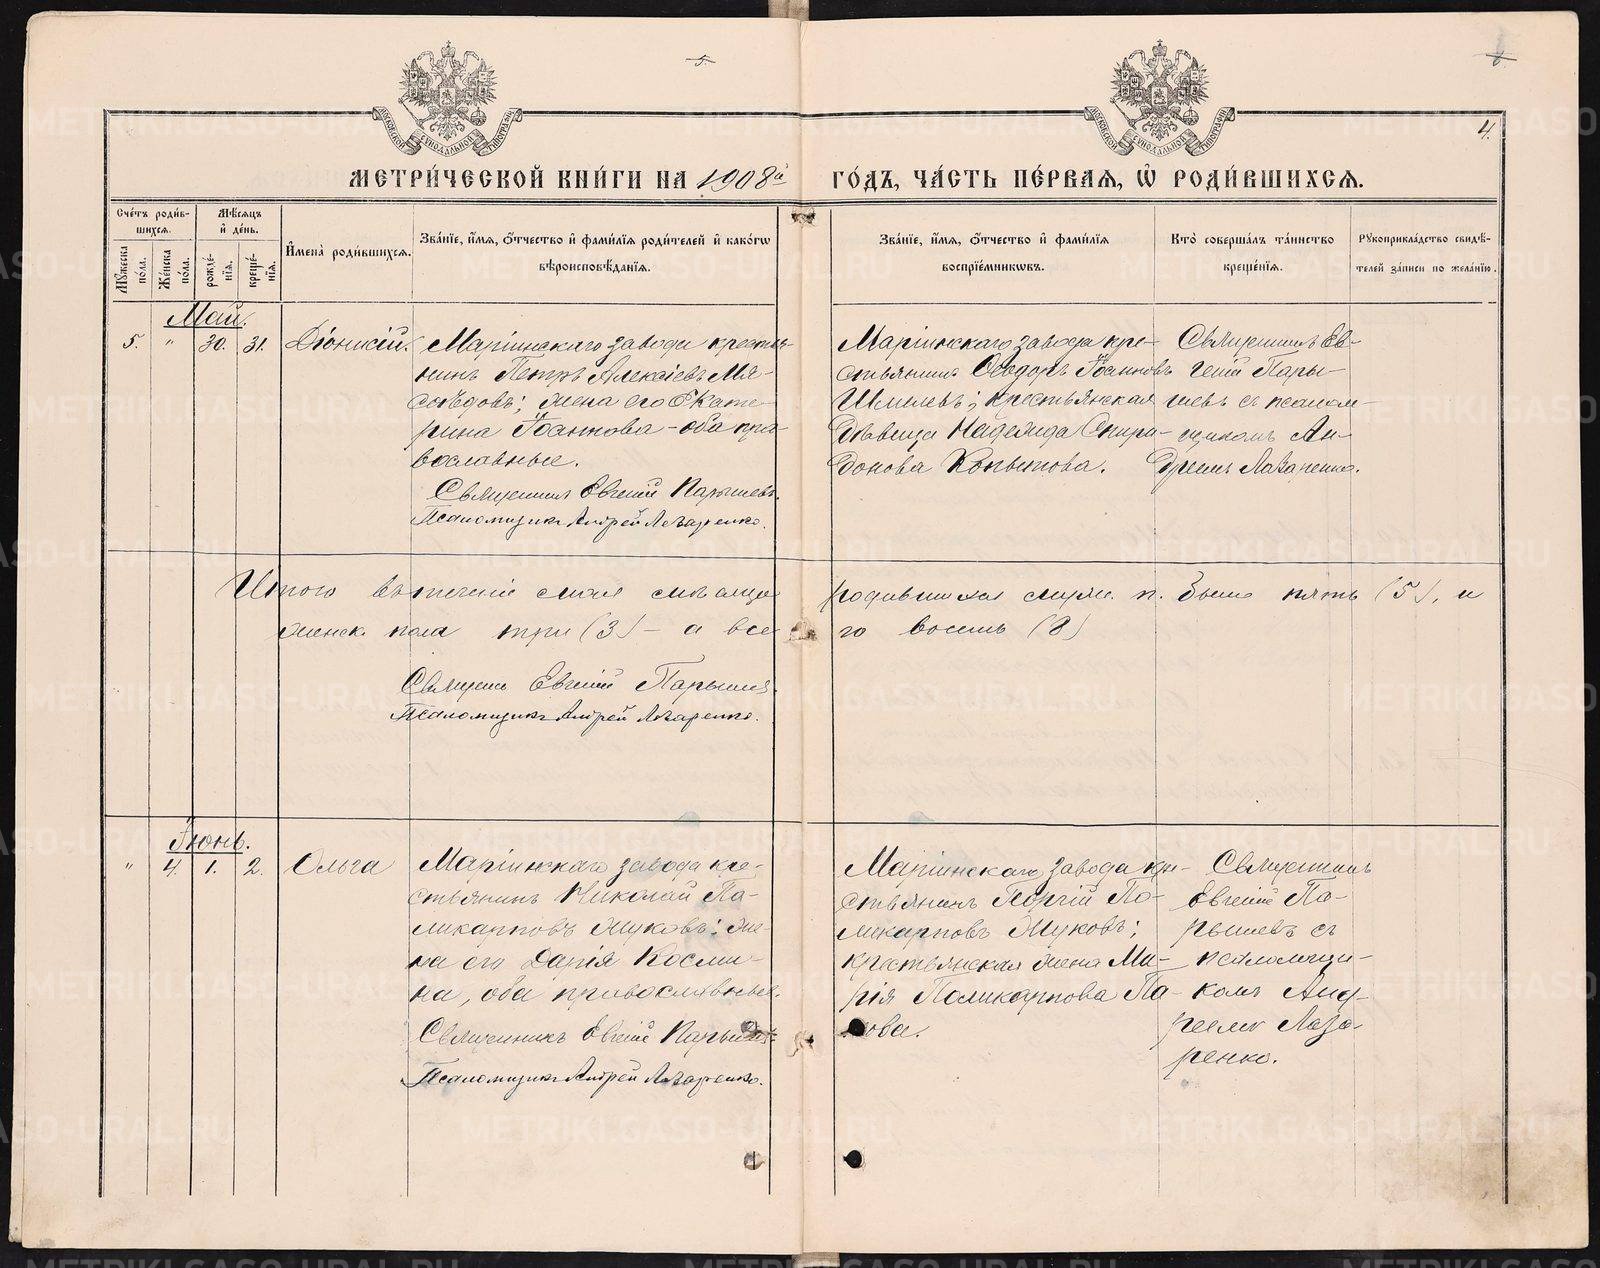 5.
6.
4.
МОСКОВСКОЙ СѴНОДАЛЬНОЙ ТИПОГРАФІИ
МОСКОВСКОЙ СѴНОДАЛЬНОЙ ТИПОГРАФІИ
МЕТРИ́ЧЕСКОЙ КНИ́ГИ НА 1908й ГО́ДЪ, ЧА́СТЬ ПЕ́РВАЯ, Ѡ РОДИ́ВШИХСЯ.
Сче́тъ роди́в-
шихся.
Мѣ́сяцъ
и де́нь.
Му́жеска по́ла.
Же́нска по́ла.
рожде́-
нїя.
креще́-
нїя.
Имена̀ роди́вшихся.
Зва́нїе, и́мя, ѻ́тчество и фами́лїя роди́телей и како́гѡ
вѣроисповѣ́данїя.
Зва́нїе, и́мя, ѻ́тчество и фами́лїя
воспрїе́мникѡвъ.
Кто̀ соверша́лъ та́инство
креще́нїя.
Рукоприкла́дство свидѣ́-
телей за́писи по жела́нїю.
Май.
5. " 30. 31. Діонисій.
Маріинскаго завода крестья-
нинъ Петръ Алексѣевъ Мя-
соѣдовъ; жена его Екате-
рина Іоаннова - оба пра-
вославные.
Священникъ Евгеній Парышевъ
Псаломщикъ Андрей Лазаренко.
Маріинскаго завода кре-
стьянинъ Ѳеодоръ Іоанновъ
Шмелевъ; крестьянская
дѣвица Надежда Спири-
донова Копытова.
Священникъ Ев-
геній Пары-
шевъ съ псалом-
щикомъ Ан-
дреемъ Лазаренко.
Итого въ теченіе мая мѣсяца родившихся муж. п. было пять (5), и
женск. пола три (3) - а всего восемь (8)
Священ. Евгеній Парышев
Псаломщикъ Андрей Лазаренко.
Іюнь.
" 4. 1. 2. Ольга
Маріинскаго завода кре-
стьянинъ Николай По-
ликарповъ Жуковъ; же-
на его Дарія Косми-
на, оба православные.
Священникъ Евгеній Парышев
Псаломщикъ Андрей Лазаренко.
Маріинскаго завода кре-
стьянинъ Георгій По-
ликарповъ Жуковъ;
крестьянская жена Ма-
рія Поликарпова По-
Священникъ
Евгеній Па-
рышевъ съ
псаломщи-
комъ Анд-
реемъ Лаза-
ренко.
METRIKI.GASO-URAL.RU